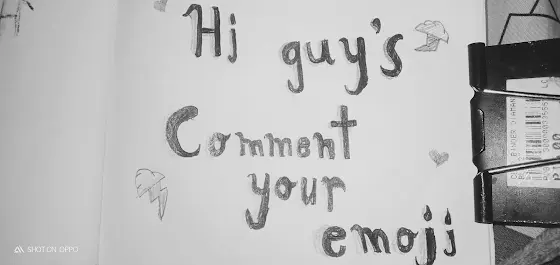 Hi guy's
Comment
your
emoji
SHOT ON OPPO